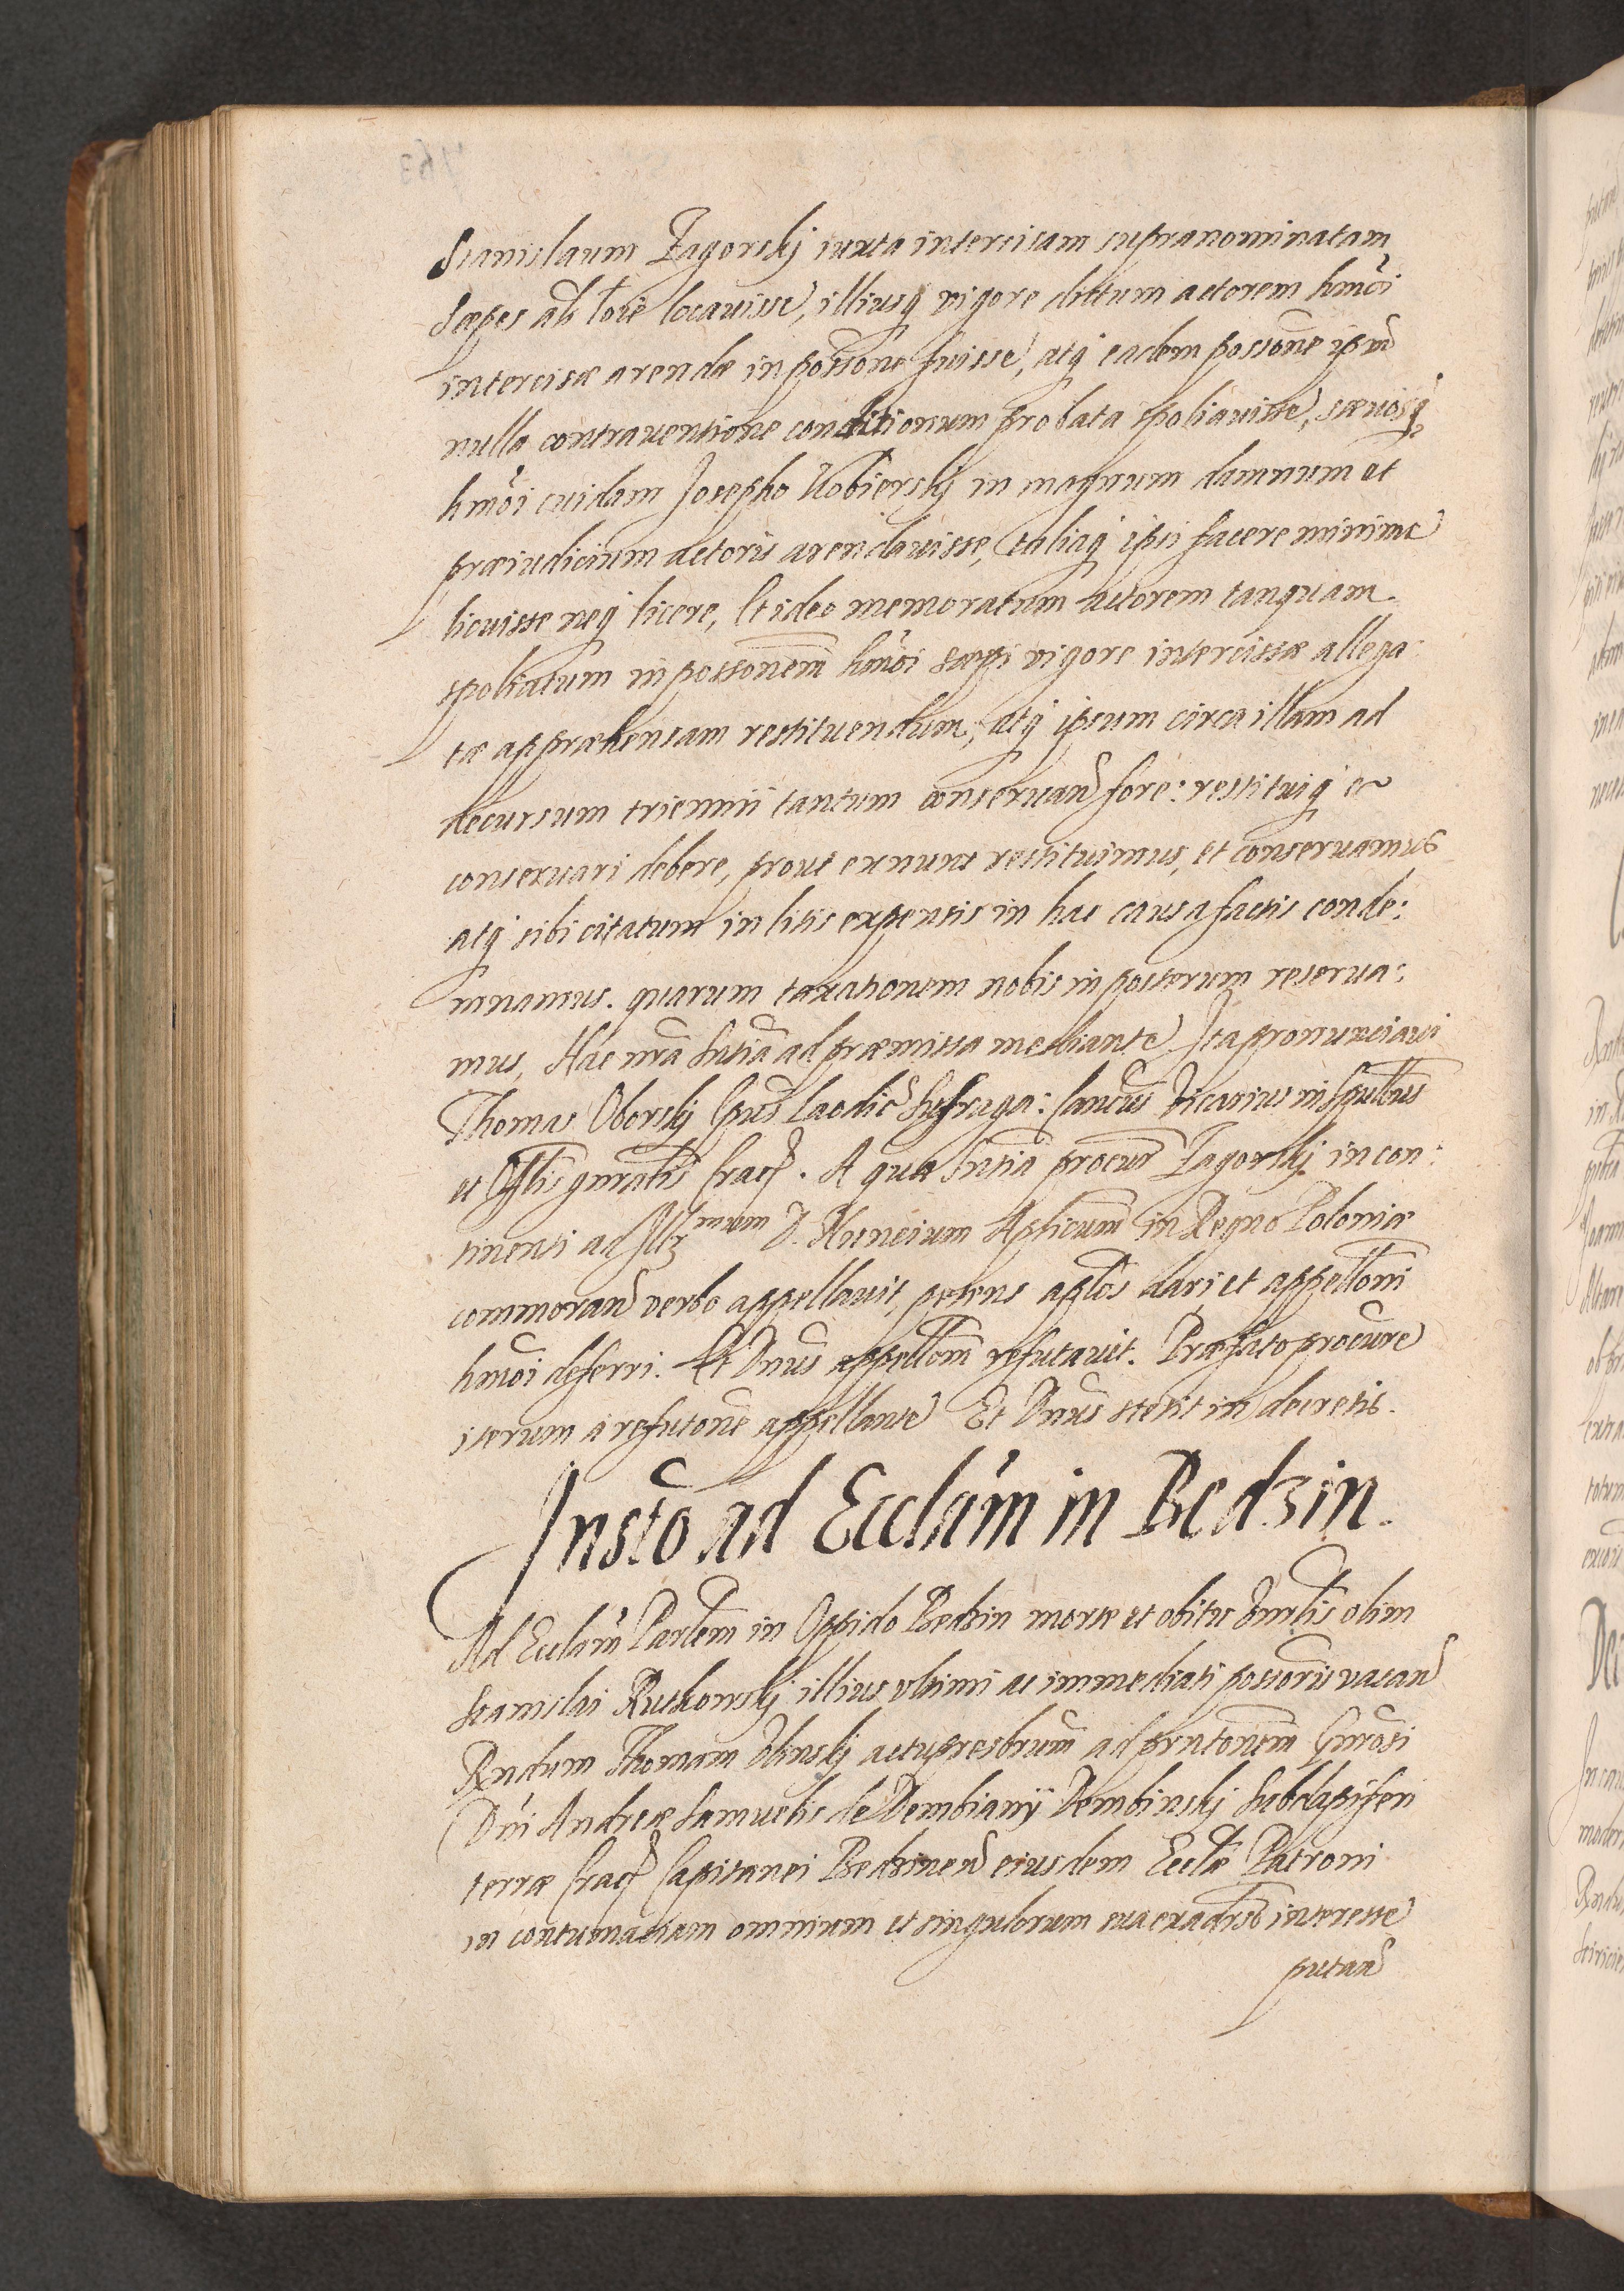 Stanislaum Zagorskj iuxta intercisam supranominatam
Sæpes ab toie locauisse, illiusq vigore dictum actorem hmōi
intercisæ arendæ in possione fuisse, atq eadem possone ipm
nulla contrauentione conditionum probata spoliauisse, sæpiosq
hmōi cuidam Josepho Kobierskj in magnum damnum et
præiudicium actoris arendauisse, taliaq ipsi facere minime
licuisse neq licere, Et ideo memoratum actorem tanquam
spoliatum in possonem hmōi sæpi vigore intercissæ allega:
tæ appræhensam restituendum, atq ipsum circa illam ad
decursum triennii tantum conseruan fore: restituiq et
conseruari debere, prout exnunc restituimus, et conseruamus
atq sibi citatum in litis expensis in hac causa factis conde:
mnamus. quarum taxationem nobis in posterum reserua:
mus, Hac nrā Sntiā ad præmissa mediante Ita pronunciaui
Thomas Oborskj Epus Laodic Suffraga: Cancus Vicarius in Spultbus
et Offlis gnralis Crac. A qua Sntia procur Zagorskj incon:
tinenti ad Illmum D. Nuncium Apticum in Regno Poloniæ
commoran verbo appellauit, petens aptos dari et appellom
hmōi deferri. Et Dnus appellom refutauit. Præfato procure
iterum a refutone appellante Et Dnus stetit in decretis.
Insto ad Ecclam in Bedzin.
Ad Ecclam Parlem in Oppido Bedzin morte et obitu Hnrlis olim
Stanislai Rutkowskj illius vltimi ac immediati possoris vacan
Rndum Thomam Olinskj actu presbrum ad prntonem Gnrosi
Dni Andreæ Samuelis de Dembiany Dembinskj Subdapiferi
terræ Crac Capitanei Bedzinen eiusdem Ecclæ Patroni
in contumaciam omnium et singulorum sua exadiso interesse
putan